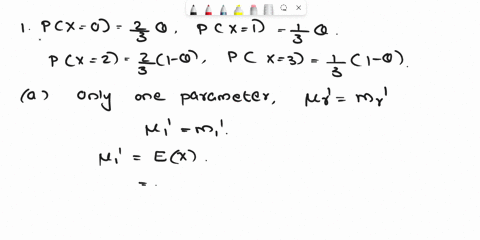 1. P(X=0) = 2/3 θ, P(X=1) = 1/3 θ.
P(X=2) = 2/3 (1-θ), P(X=3) = 1/3 (1-θ).
(a) Only one parameter, μr' = mr'
μ1' = m1'.
μ1' = E(X).
=